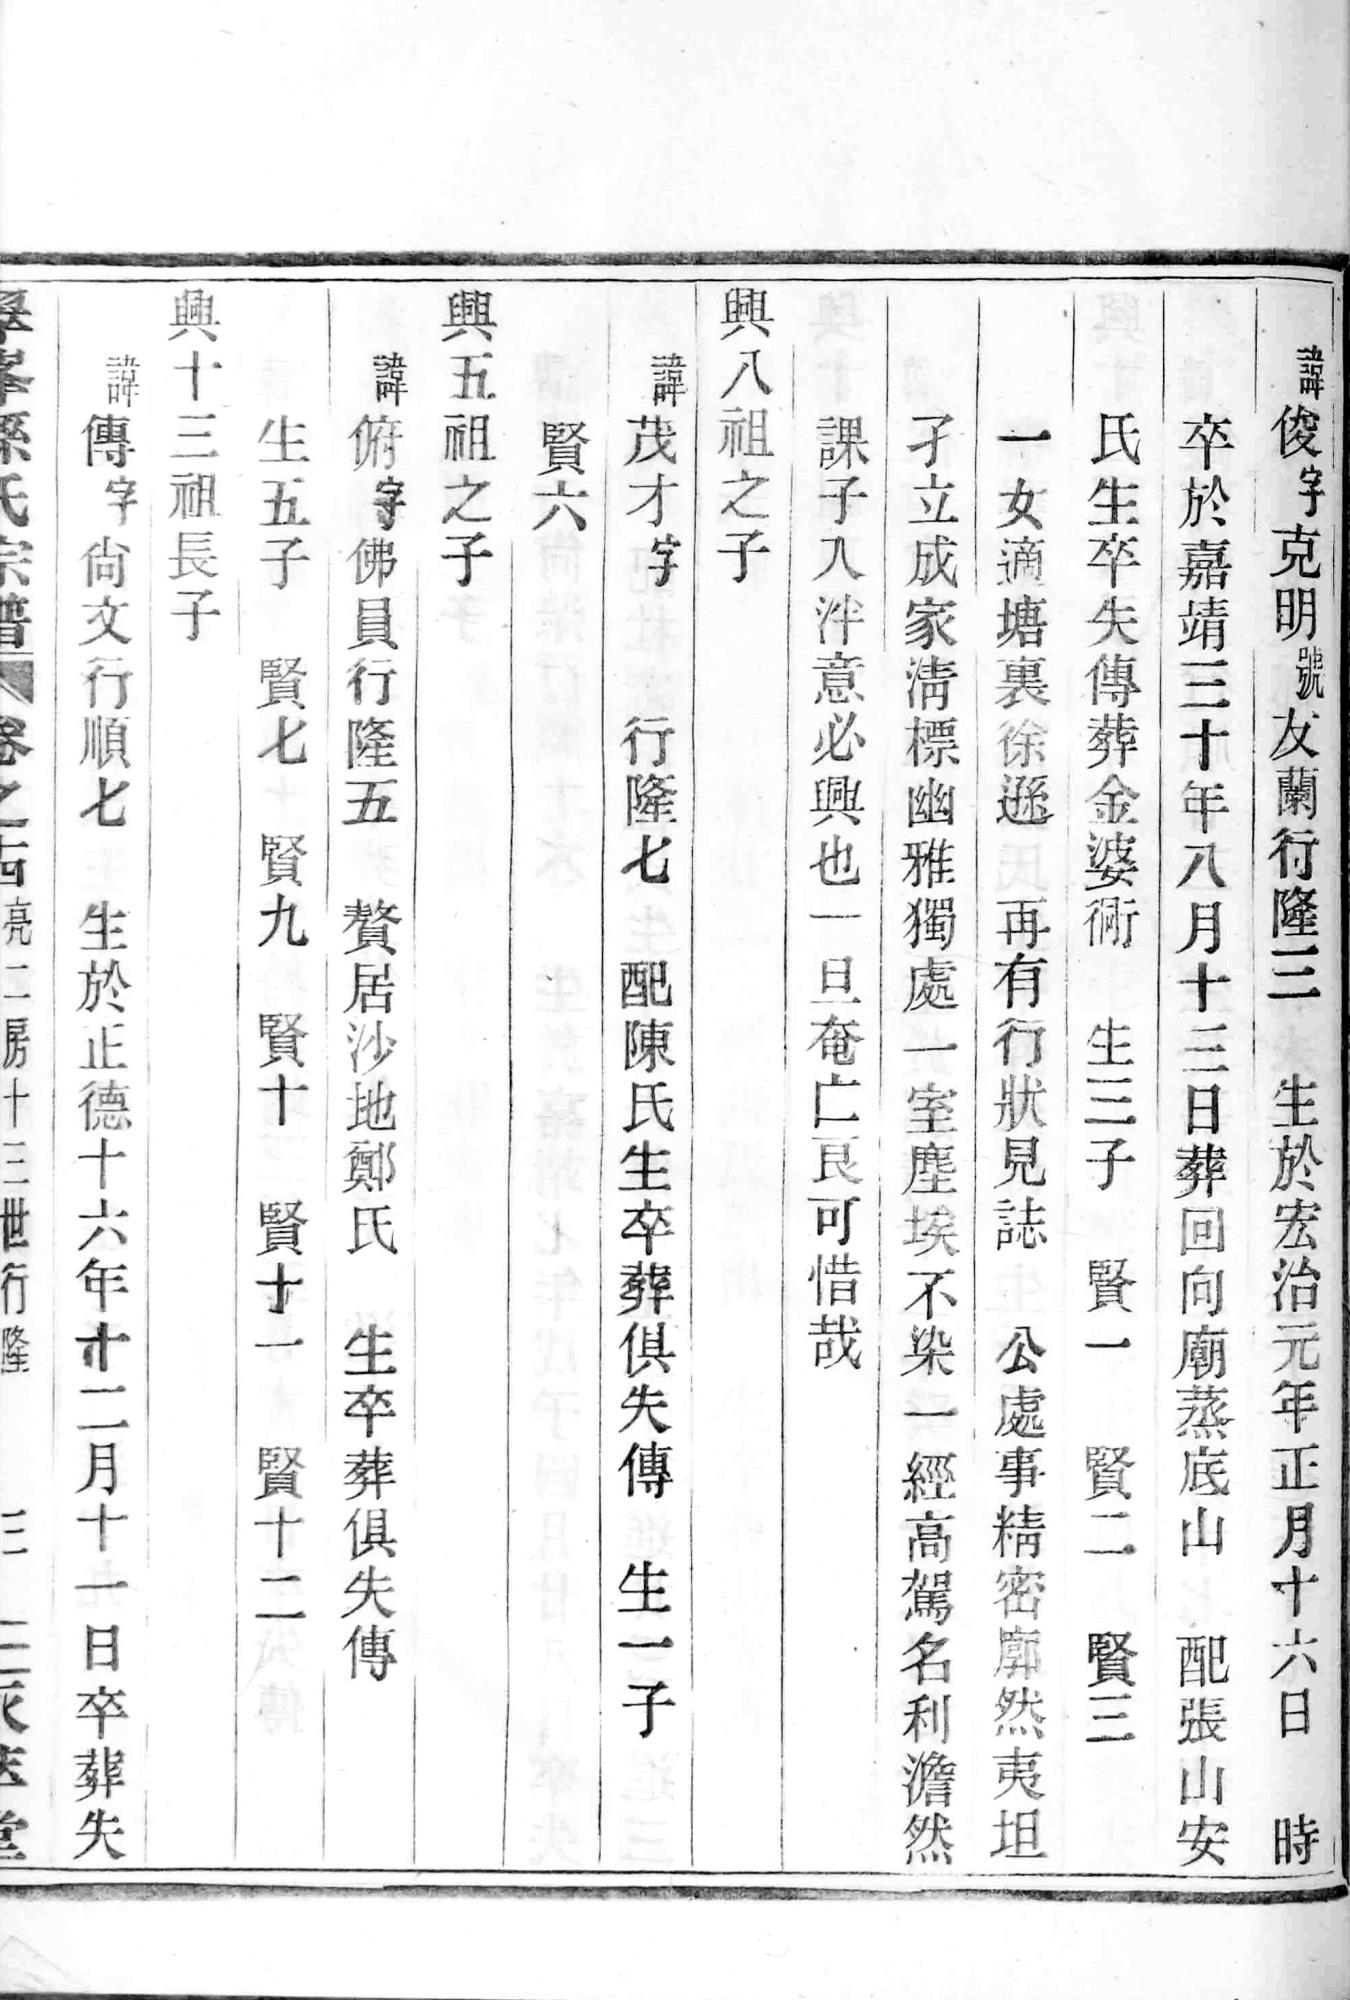 諱俊字克明號友蘭行隆三　生於宏治元年正月十六日　時
卒於嘉靖三十年八月十三日葬回向廟蒸底山　配張山安
氏生卒失傳葬金婆衕　生三子　賢一　賢二　賢三
一女適塘裏徐遜　再有行狀見誌　公處事精密廓然夷坦
孑立成家淸標幽雅獨處一室塵埃不染一經高駕名利澹然
課子入泮意必興也一旦奄亡良可惜哉
興八祖之子
諱茂才字　行隆七　配陳氏生卒葬俱失傳　生一子
賢六
興五祖之子
諱俯字佛員行隆五　贅居沙地鄭氏　生卒葬俱失傳
生五子　賢七　賢九　賢十　賢十一　賢十二
興十三祖長子
諱傳字尙文行順七　生於正德十六年十二月十一日卒葬失
孫氏宗譜　卷之十四　亮二房十三世行隆　三　堂